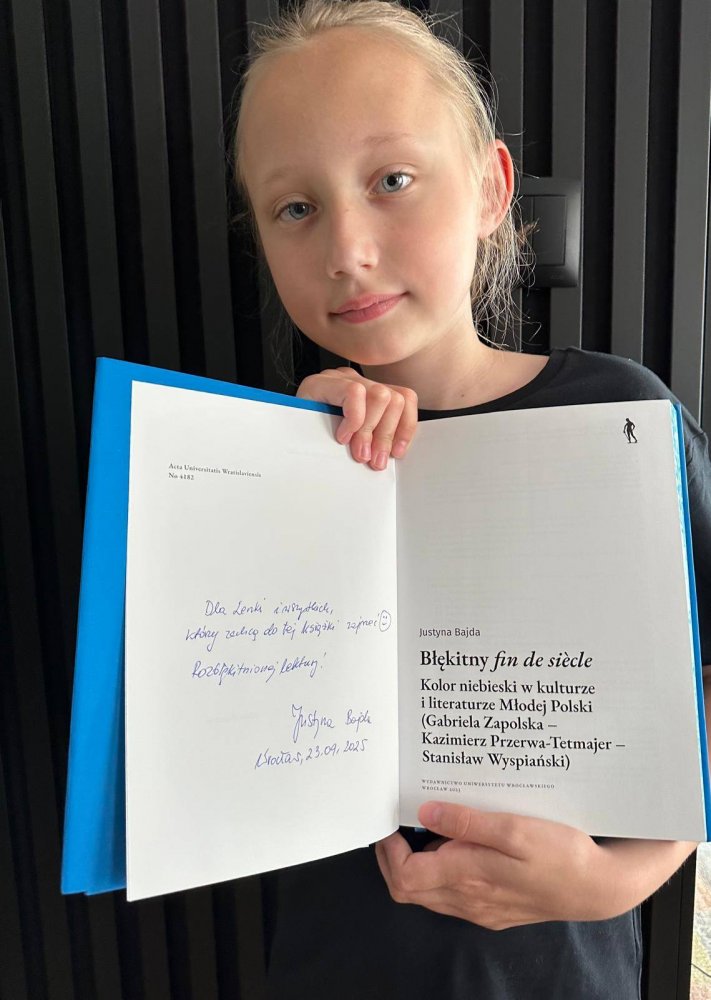 Acta Universitatis Wratislaviensis
No 4182
Dla Lenki i wszystkich,
którzy zechcą do tej książki zajrzeć ☺
Rozbłękitnionej lektury!
Justyna Bajda
Wrocław, 23.09.2025
Justyna Bajda
Błękitny fin de siècle
Kolor niebieski w kulturze
i literaturze Młodej Polski
(Gabriela Zapolska –
Kazimierz Przerwa-Tetmajer –
Stanisław Wyspiański)
WYDAWNICTWO UNIWERSYTETU WROCŁAWSKIEGO
WROCŁAW 2023